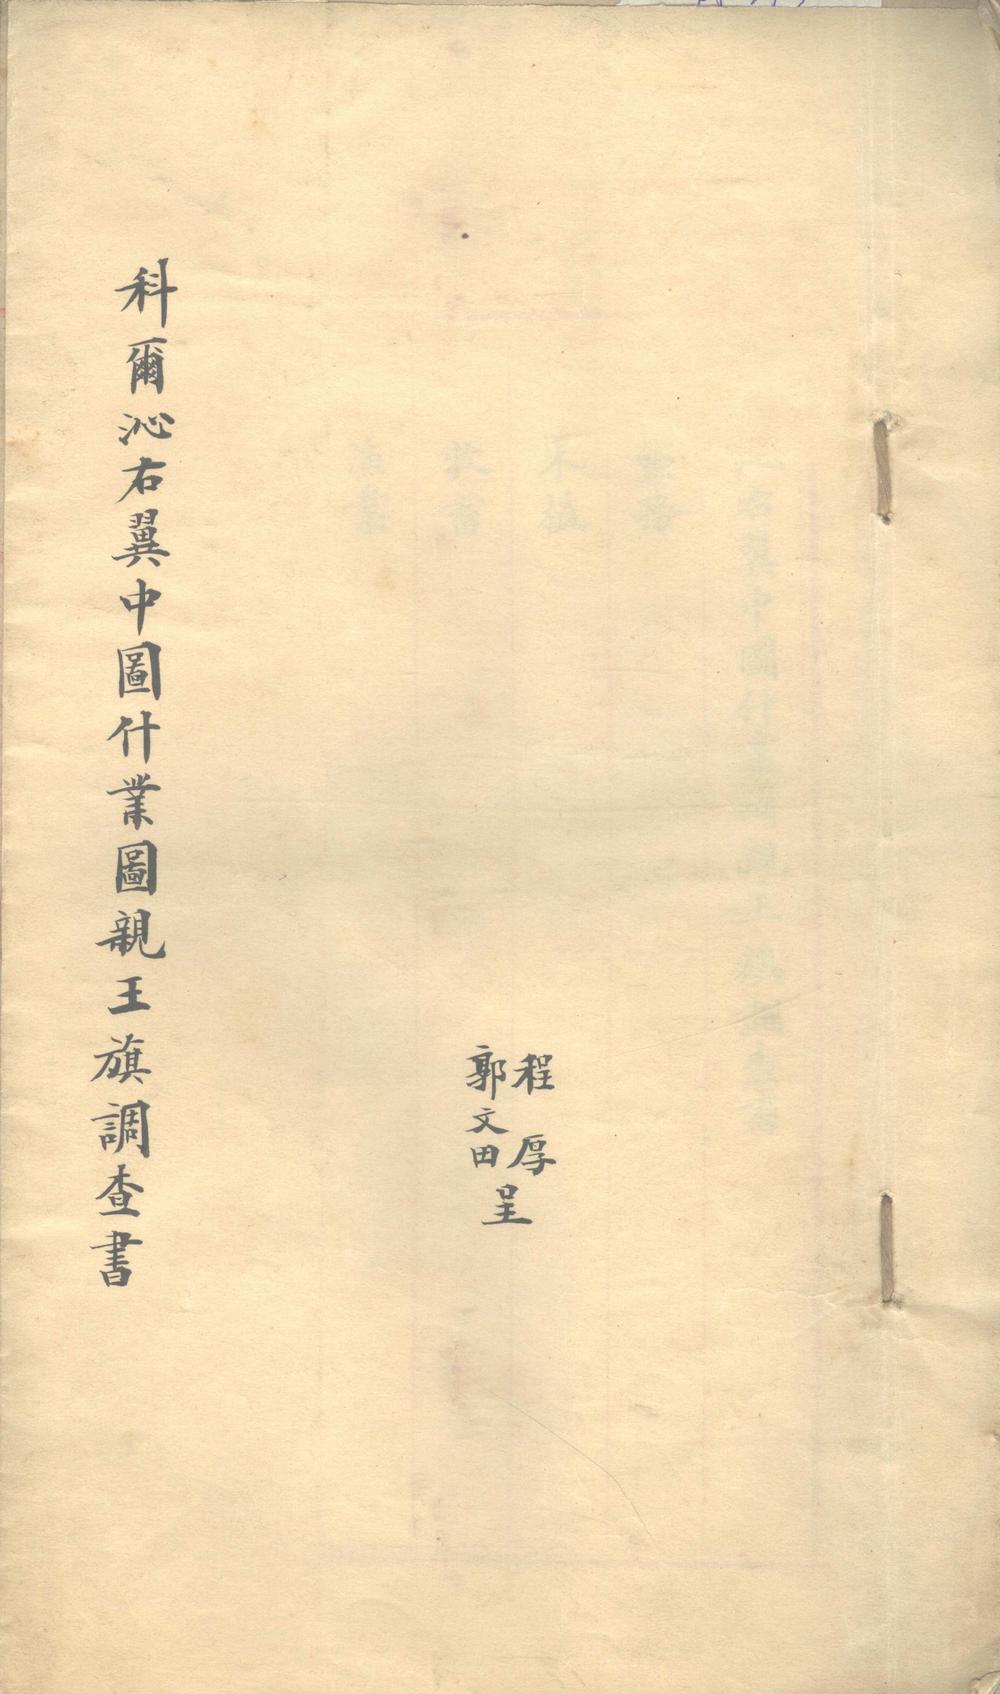 程厚
郭文田
呈
科爾沁右翼中圖什業圖親王旗調查書